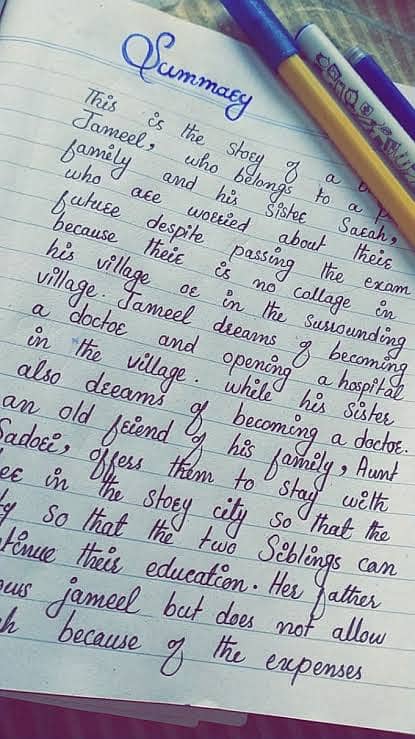 Summary
This is the story of a
Jameel, who belongs to a
family and his sister Sarah,
who are worried about their
future despite passing the exam
because their is no collage in
his village or in the sussounding
village. Jameel dreams of becoming
a doctor and opening a hospital
in the village. while his Sister
also dreams of becoming a doctor.
an old friend of his family, Aunt
offers them to stay with
in the story city so that the
so that the two Siblings can
their education. Her father
jameel but does not allow
because of the expenses